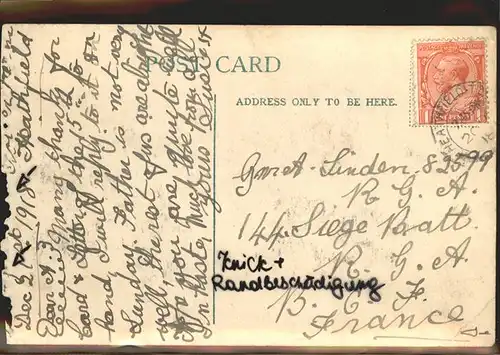 POST CARD
ADDRESS ONLY TO BE HERE.
Dec 3, 1918
Heathfield
Dear A.
Many thanks for
Card & Letter of the 5th to
hand, I will reply to it on
Sunday. Father is not very
well, the rest of us are alright
you are quite well
In haste, Much love from all
Yours
Gnr A. Linden. 82599
R G A
144 Siege Batt
R. G. A.
B. E. F.
France
Knick +
Randbeschädigung